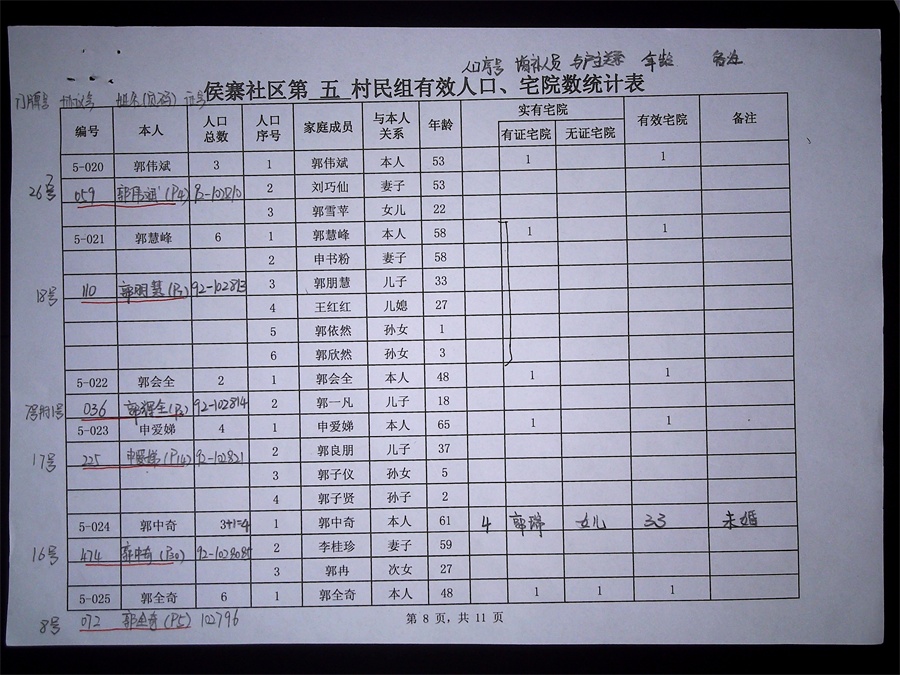 人口序号 增补人员 与户主关系 年龄 备注
侯寨社区第 五 村民组有效人口、宅院数统计表
门牌号 协议号 姓名(页码) 证号
编号 本人 人口总数 人口序号 家庭成员 与本人关系 年龄 实有宅院 有效宅院 备注
有证宅院 无证宅院
5-020 郭伟斌 3 1 郭伟斌 本人 53 1 1
26号 059 郭伟斌(P4) 92-102810 2 刘巧仙 妻子 53
3 郭雪苹 女儿 22
5-021 郭慧峰 6 1 郭慧峰 本人 58 1 1
2 申书粉 妻子 58
18号 110 郭朋慧 92-102813 3 郭朋慧 儿子 33
4 王红红 儿媳 27
5 郭依然 孙女 1
6 郭欣然 孙女 3
5-022 郭会全 2 1 郭会全 本人 48 1 1
036 92-102814 2 郭一凡 儿子 18
5-023 申爱娣 4 1 申爱娣 本人 65 1 1
17号 225 申爱娣(P14) 92-102821 2 郭良朋 儿子 37
3 郭子仪 孙女 5
4 郭子贤 孙子 2
5-024 郭中奇 3+1=4 1 郭中奇 本人 61 4 郭瑞 女儿 33 未婚
16号 474 郭中奇(P30) 2 李桂珍 妻子 59
3 郭冉 次女 27
5-025 郭全奇 6 1 郭全奇 本人 48 1 1 1
8号 072 郭全奇(P5) 102796
第 8 页，共 11 页